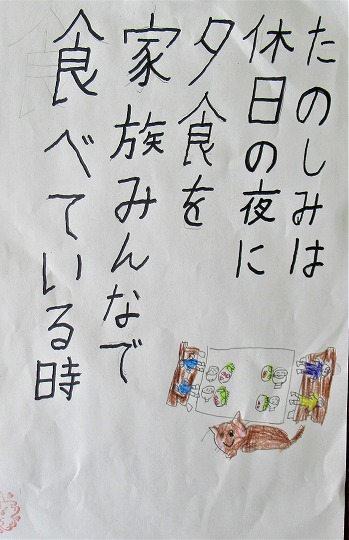 たのしみは
休日の夜に
夕食を
家族みんなで
食べている時